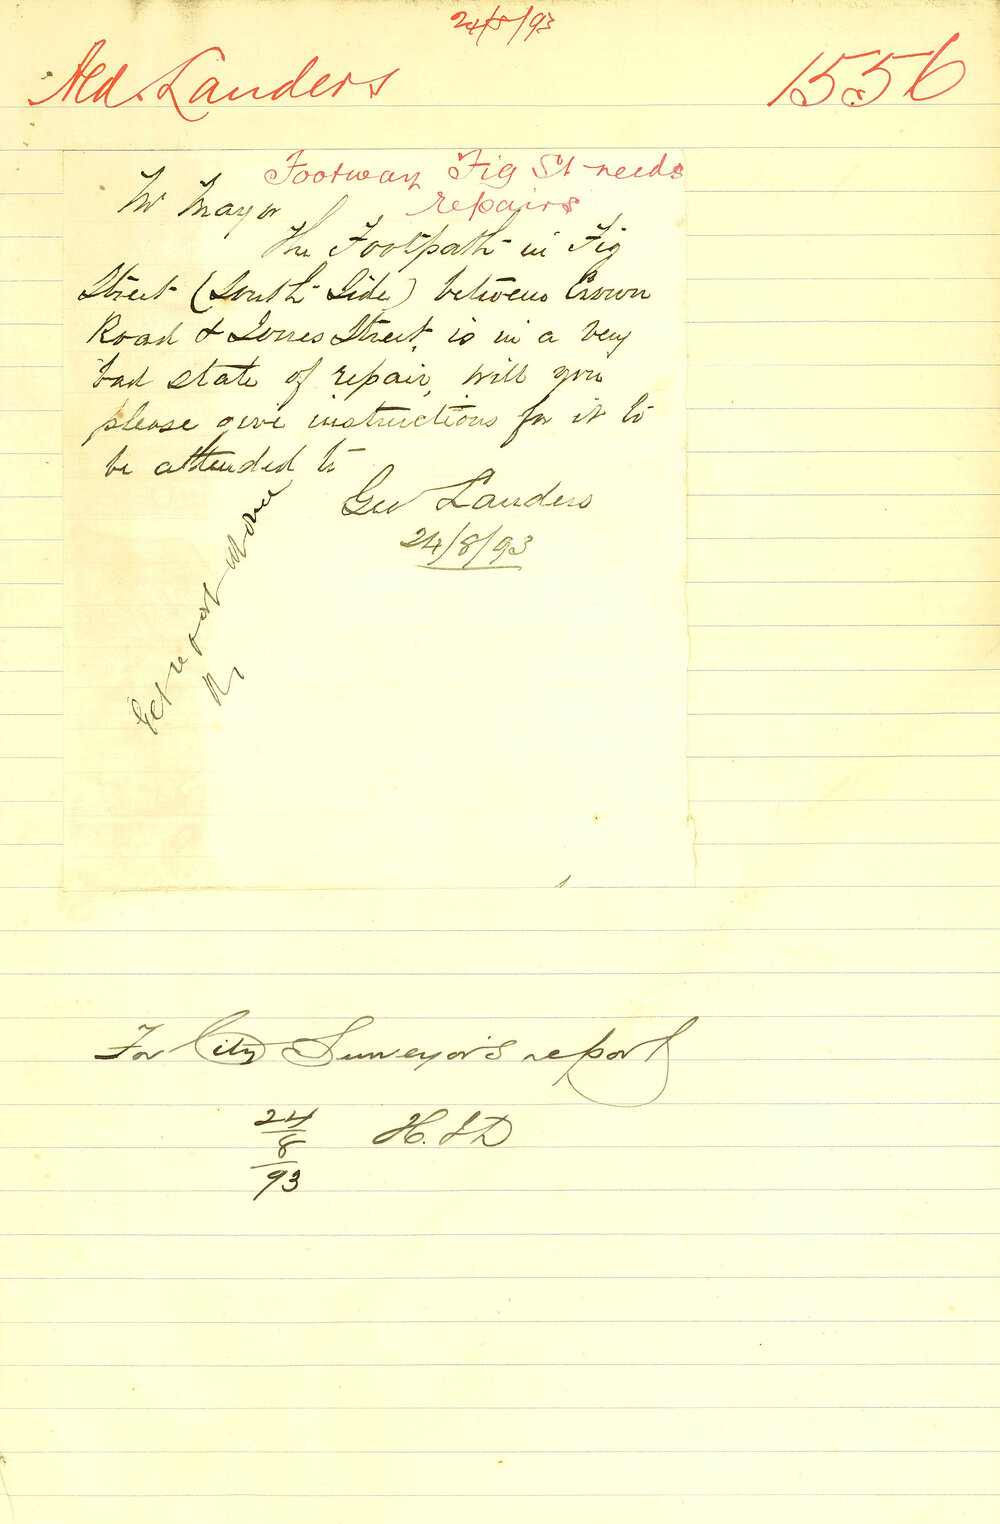 24/8/93
Ald. Landers 1556
Footway Fig St needs
repairs
Mr Mayor
The Footpath in Fig
Street (South Side) between Crown
Road & Jones Street, is in a very
bad state of repair, will you
please give instructions for it to
be attended to
Geo Landers
24/8/93
Get report above
For City Surveyor's report
24
8
93
H.S.D